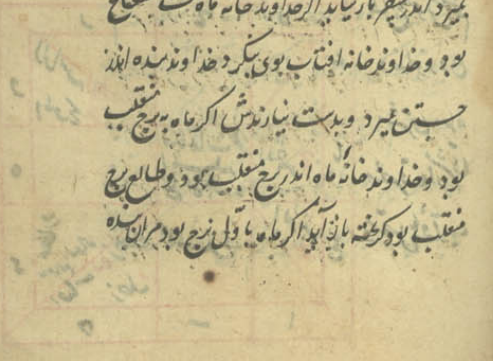 بمیرد اندر سفر باز نیاید اگر خداوند خانه ماه
بود و خداوند خانه افتاب بوی بنکرد خداوند بنده اندر
جستن میرد و بدست نیارندش اکر ماه به برج منقلب
بود و خداوند خانهٔ ماه اندر برج منقلب بود و طالع برج
منقلب بود کریخته باز آید اکر ماه باوّل برج بود مران بنده